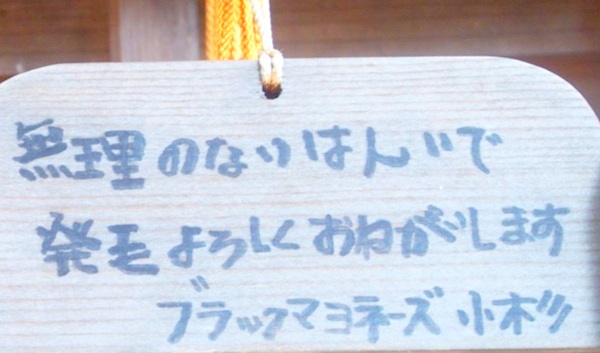 無理のないはんいで
発毛よろしくおねがいします
ブラックマヨネーズ 小杉